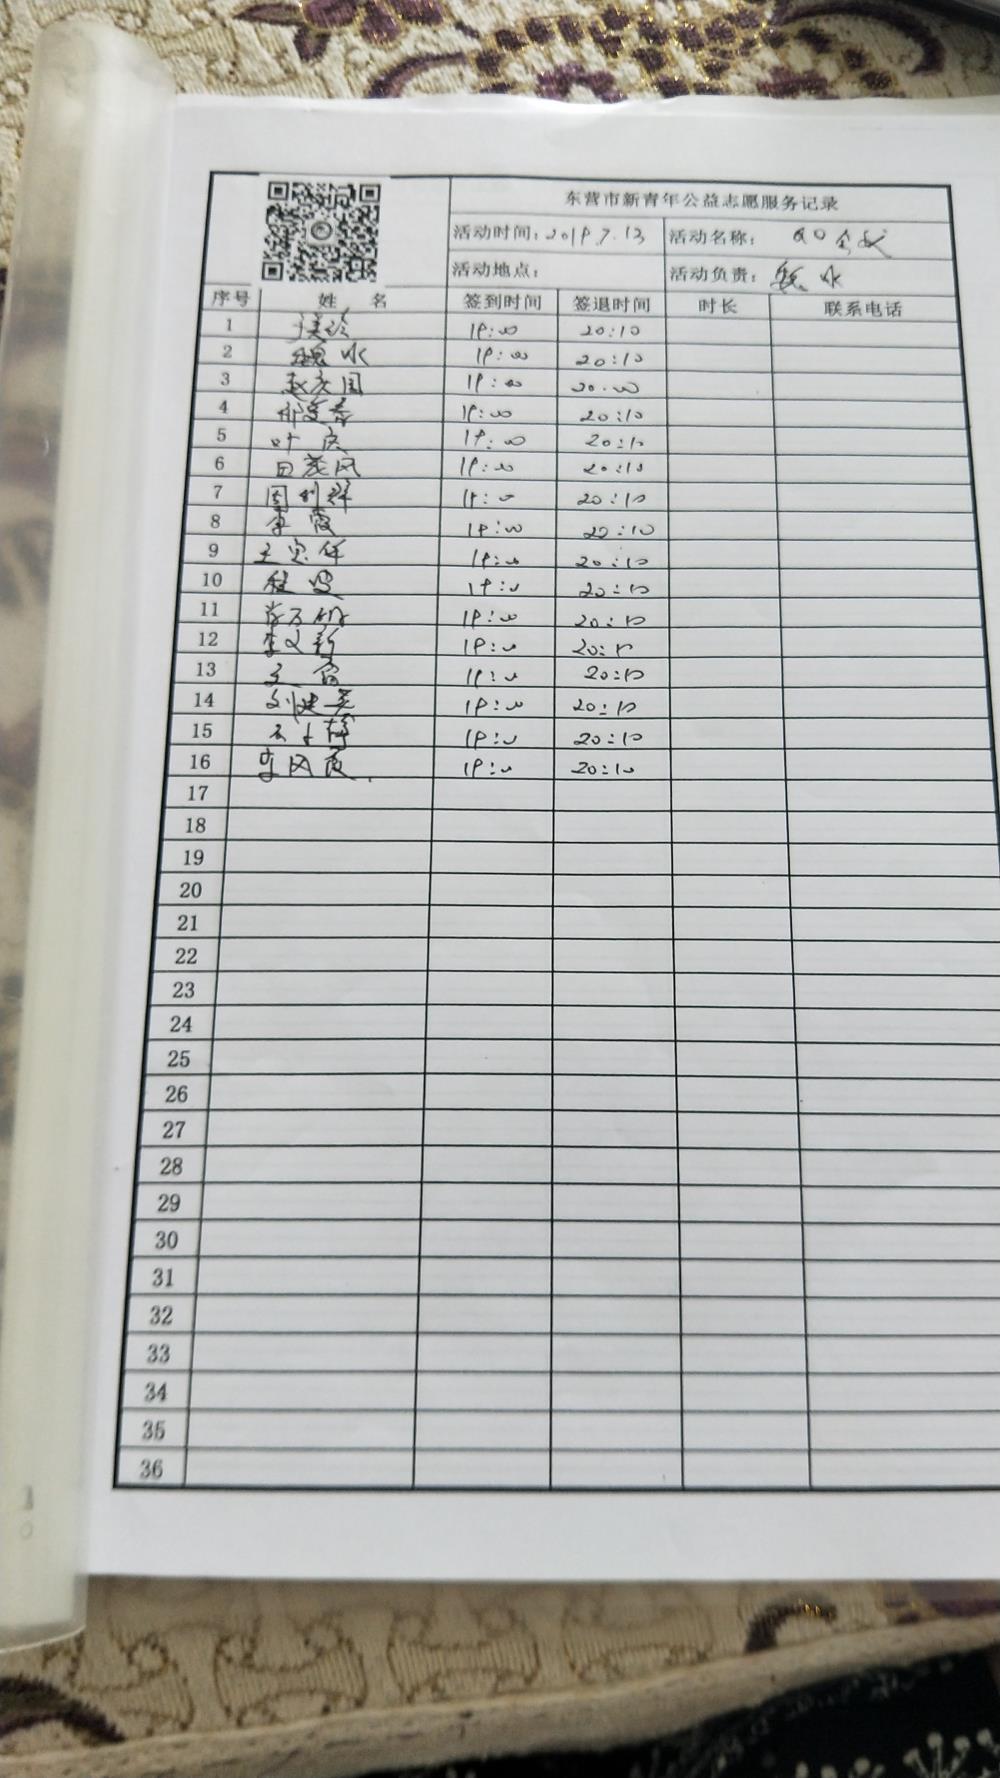 东营市新青年公益志愿服务记录
活动时间：2019.7.13 活动名称：
活动地点： 活动负责：魏 水
序号 姓 名 签到时间 签退时间 时长 联系电话
1 19:00 20:10
2 魏 水 19:00 20:10
3 赵庆国 19:00 20:00
4 19:00 20:10
5 叶 庆 19:00 20:10
6 田茂风 19:00 20:10
7 周利群 19:00 20:10
8 李 霞 19:00 20:10
9 王忠 19:00 20:10
10 程 19:00 20:10
11 19:00 20:10
12 李文新 19:00 20:10
13 王 19:00 20:10
14 刘建美 19:00 20:10
15 19:00 20:10
16 李风霞 19:00 20:10
17
18
19
20
21
22
23
24
25
26
27
28
29
30
31
32
33
34
35
36